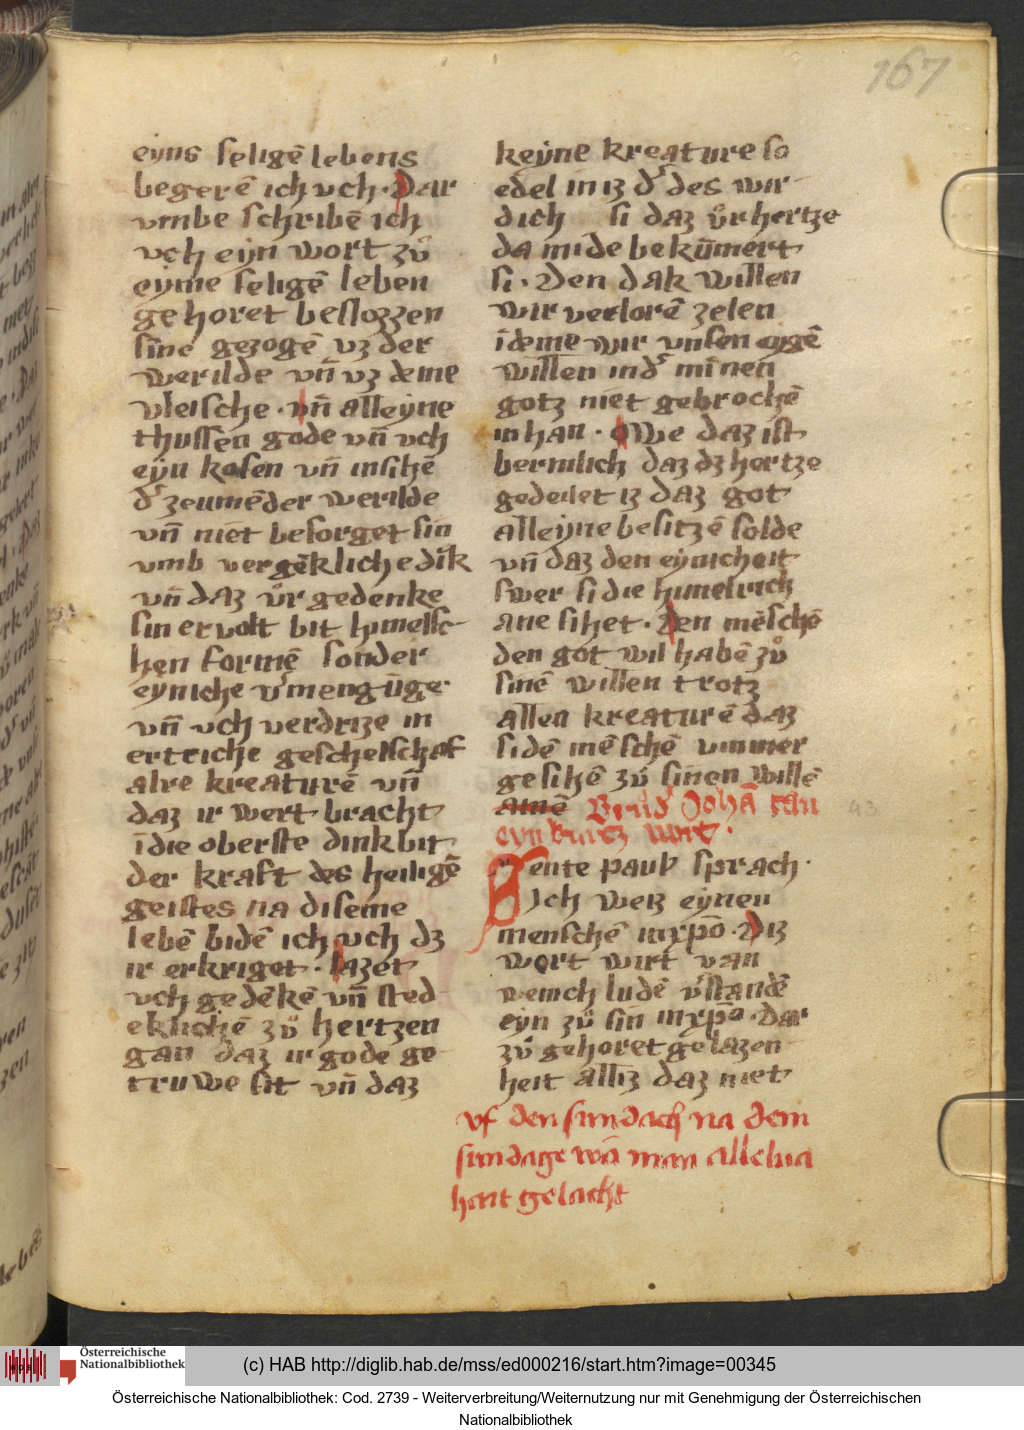 167
eyns seligē lebens
begerē ich vch · Dar
vmbe schribē ich
vch eyn wort zuͦ
eyme seligē leben
gehoret beslozzen
sine gezogē vz der
werilde vn̄ vz deme
vleische · vn̄ alleyne
thussen gode vn̄ vch
eyn kosen vn̄ insihē
d' zeumēder werilde
vn̄ niet besorget sin
vmb vergēkliche dīk
vn̄ daz vͦr gedenke
sin er volt bit himelsc-
hen formē sonder
eyniche v'mengūge·
vn̄ vch verdrize in
ertriche geschelschaf
alre kreaturē vn̄
daz ir wert bracht
ī die oberste dink bit
der kraft des heiligē
geistes na diseme
lebē bidē ich vch dz
ir erkriget · lazet
vch gedēkē vn̄ sted
eklichē zuͦ hertzen
gan daz ir gode ge
truwe sit vn̄ daz
keyne kreature so
edel in iz d' des wir
dich si daz vͦr hertze
da mide bekūmert
si · Den dak willen
wir verlorē zelen
ī deme wir vnsen eygē
willen in d' minen
gotz niet gebrochē
in han · O We daz ist
bermlich daz dz hertze
gedeilet iz daz got
alleyne besitzē solde
vn̄ daz den eynicheit
swer si die himelrich
ane sihet · Den mēschē
den got wil habē zuͦ
sinē willen trotz
allen kreaturē daz
si dē mēschē vmmer
gesihē zuͦ sinen willē
amē Brud' Johā tau
eyn kurtz wort ·
Sente paulꝰ sprach ·
Ich weiz eynen
menschē in xp̄o · Diz
wort wirt van
wenich ludē v'standē
eyn zuͦ sin in xp̄o · Dar
zuͦ gehoret gelazen
heit alliz daz niet
vf den sundach na dem
sundage wā man alleluia
hait gelacht
(c) HAB http://diglib.hab.de/mss/ed000216/start.htm?image=00345
Österreichische
Nationalbibliothek
Österreichische Nationalbibliothek: Cod. 2739 - Weiterverbreitung/Weiternutzung nur mit Genehmigung der Österreichischen
Nationalbibliothek